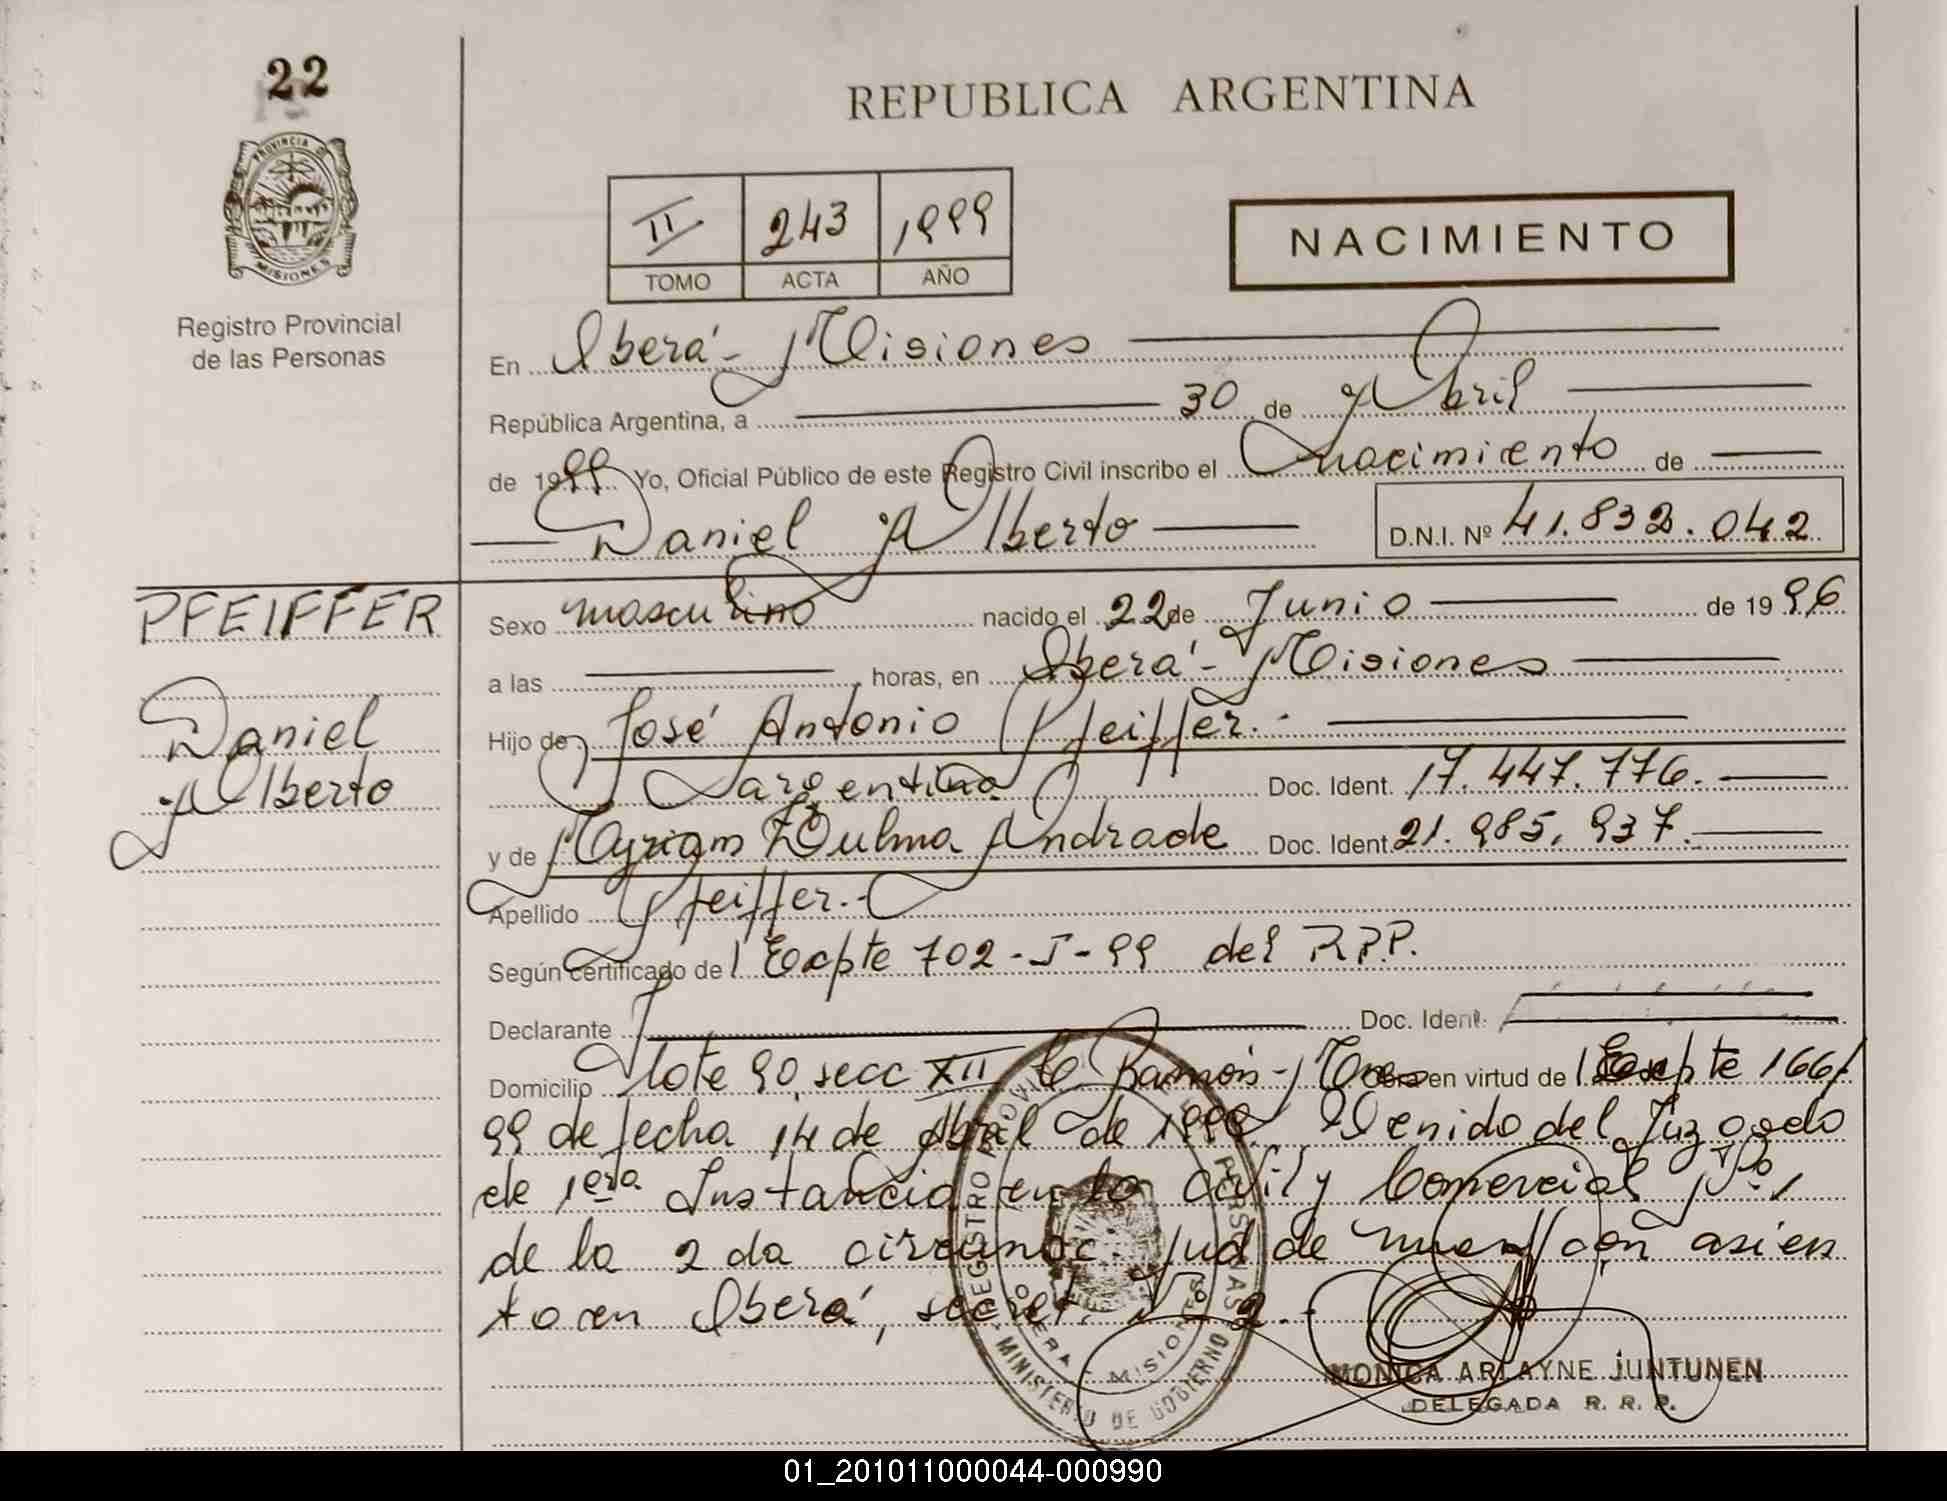 22
PROVINCIA D
MISIONES
Registro Provincial
de las Personas
REPUBLICA ARGENTINA
II 243 1999
TOMO ACTA AÑO
NACIMIENTO
En Oberá - Misiones
República Argentina, a 30 de Abril
de 1999 Yo, Oficial Público de este Registro Civil inscribo el Nacimiento de
Daniel Alberto D.N.I. Nº 41.832.042
PFEIFFER
Daniel
Alberto
Sexo masculino nacido el 22 de Junio de 1996
a las horas, en Oberá - Misiones
Hijo de José Antonio Pfeiffer.-
argentino Doc. Ident. 17.447.776.
y de Myriam Zulma Andrade Doc. Ident. 21.985.937.
Apellido Pfeiffer.-
Según certificado de Expte 702-I-99 del R.P.P.
Declarante Doc. Ident.
Domicilio lote 90 secc XII C Ramón - Mnes Obra en virtud de Expte 166/
99 de fecha 14 de Abril de 1999 Venido del Juzgado
de 1era Instancia en lo Civil y Comercial Nº 1
de la 2da circunsc. Jud de con asien
to en Oberá, secret. Nº 2.
REGISTRO PROVINCIAL DE LAS PERSONAS
OBERA - MISIONES
MINISTERIO DE GOBIERNO
MONICA ARLAYNE JUNTUNEN
DELEGADA R. R. P.
01_201011000044-000990